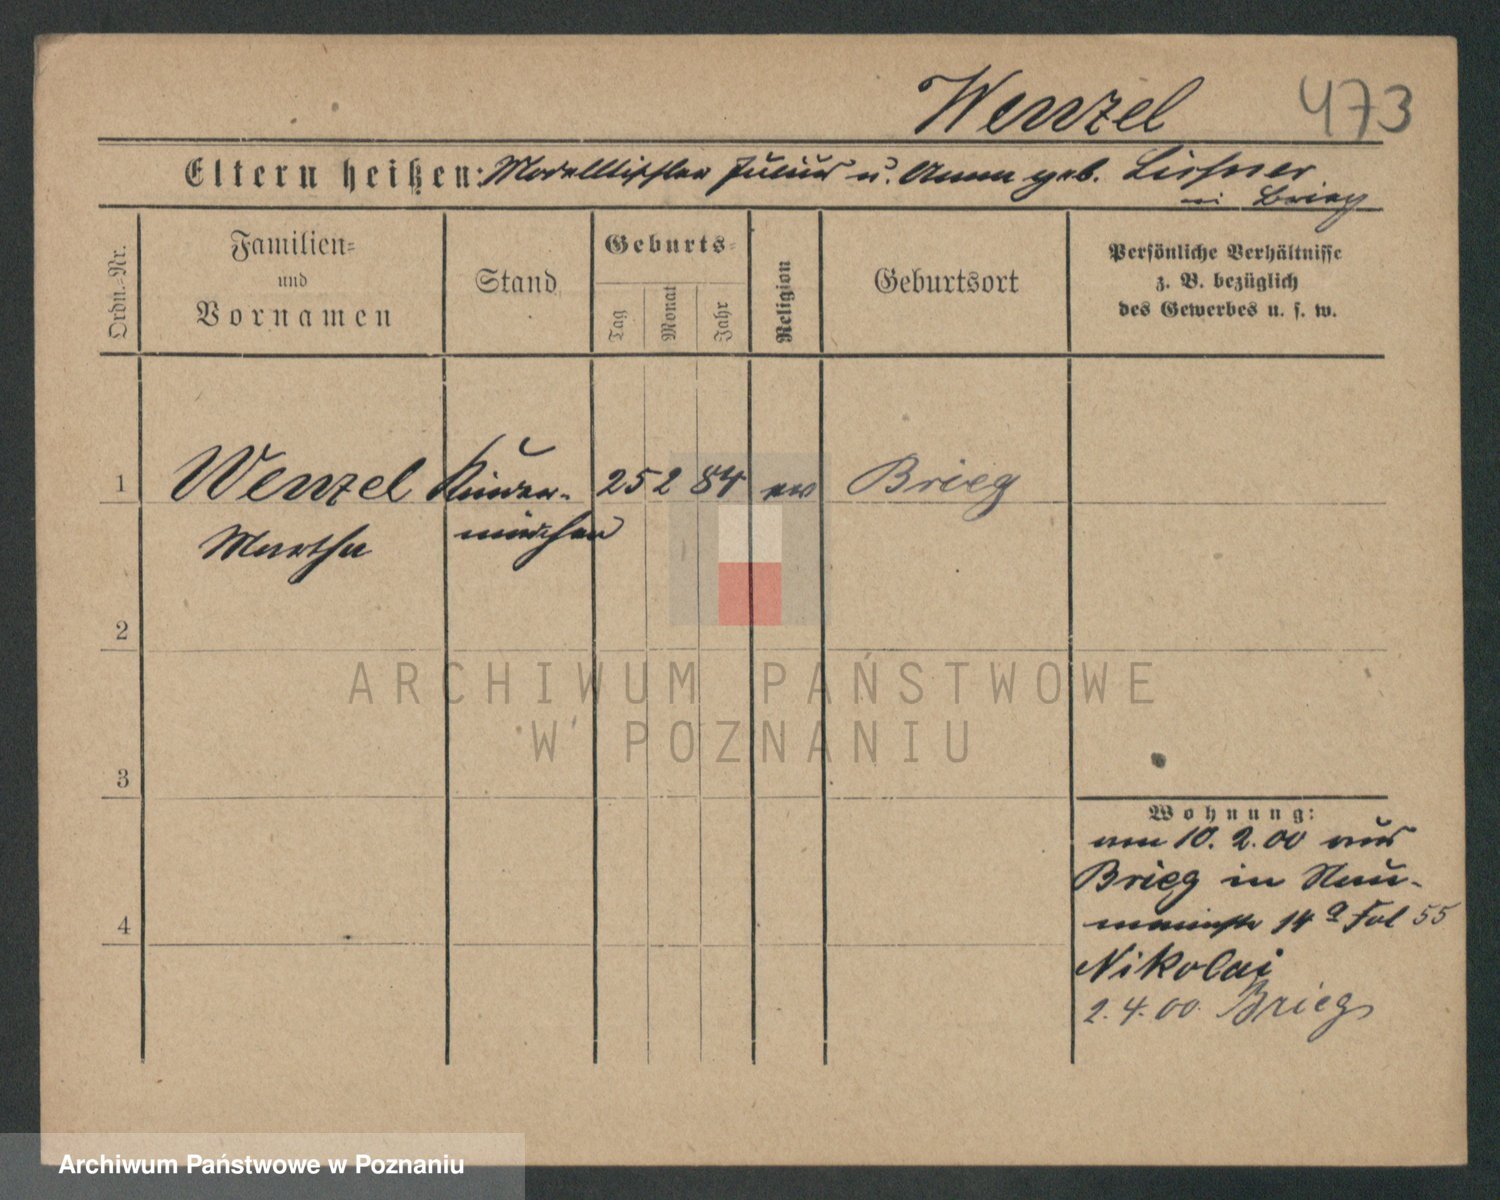 Wenzel 473
Eltern heißen: Modelltischler Julius u. Anna geb.
in Brieg
Ordn.-Nr.
Familien-
und
Vornamen
Stand
Geburts-
Tag
Monat
Jahr
Religion
Geburtsort
Persönliche Verhältnisse
z. B. bezüglich
des Gewerbes u. s. w.
1 Wenzel Kinder- 25 2 84 ev Brieg
Martha mädchen
2
ARCHIWUM PAŃSTWOWE
W POZNANIU
3
Wohnung:
am 10. 2. 00 aus
Brieg in Nau-
14 a 55
4
Nikolai
2. 4. 00 Brieg
Archiwum Państwowe w Poznaniu